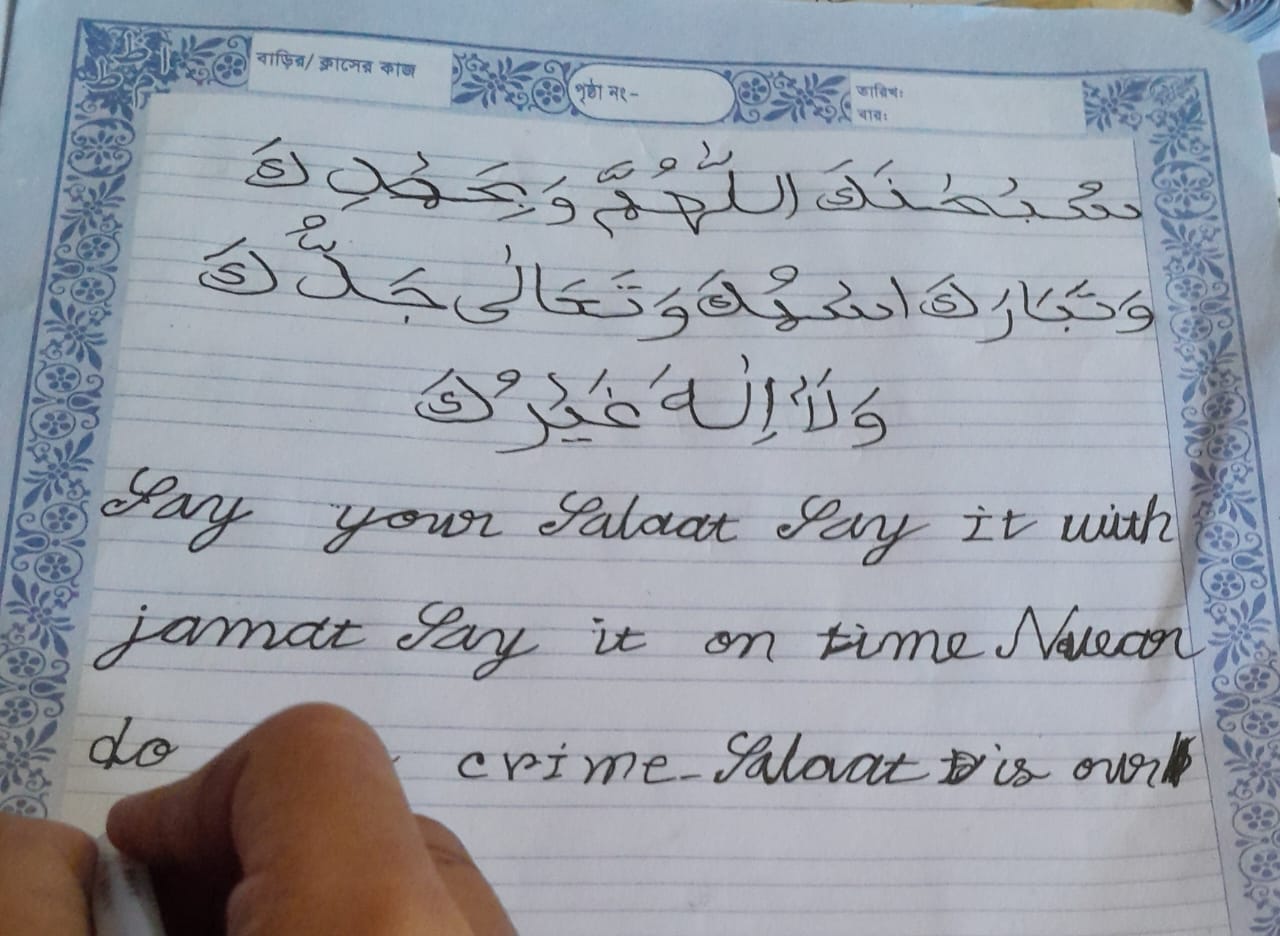 বাড়ির/ ক্লাসের কাজ
পৃষ্ঠা নং-
তারিখঃ
বারঃ
سُبْحٰنَكَ اللّٰهُمَّ وَبِحَمْدِكَ
وَتَبَارَكَ اسْمُكَ وَتَعَالٰى جَدُّكَ
وَلَا إِلٰهَ غَيْرُكَ
Say your Salaat Say it with
jamat Say it on time
do crime - Salaat is our